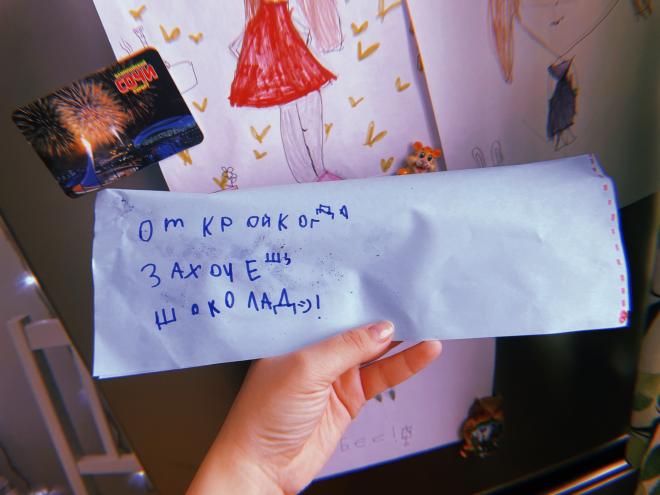 СОЧИ
ОТКРОЙ КОГДА
ЗАХОЧЕШЬ
ШОКОЛАД=)!